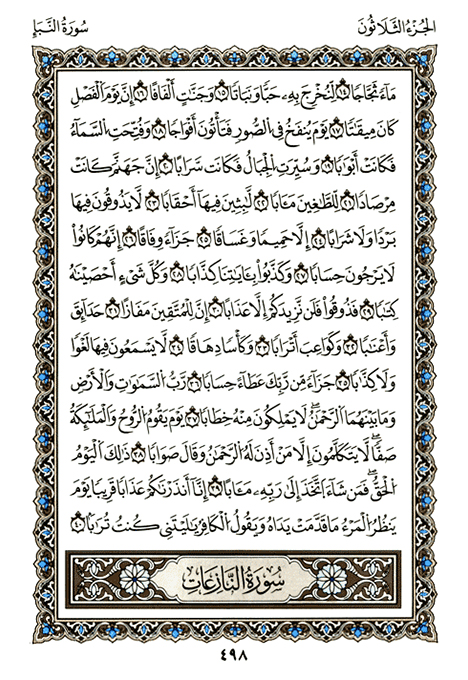 الجُزْءُ الثَّلَاثُونَ
سُورَةُ النَّبَإِ
مَآءً ثَجَّاجًا ١٤ لِّنُخْرِجَ بِهِۦ حَبًّا وَنَبَاتًا ١٥ وَجَنَّٰتٍ أَلْفَافًا ١٦ إِنَّ يَوْمَ ٱلْفَصْلِ
كَانَ مِيقَٰتًا ١٧ يَوْمَ يُنفَخُ فِى ٱلصُّورِ فَتَأْتُونَ أَفْوَاجًا ١٨ وَفُتِحَتِ ٱلسَّمَآءُ
فَكَانَتْ أَبْوَٰبًا ١٩ وَسُيِّرَتِ ٱلْجِبَالُ فَكَانَتْ سَرَابًا ٢٠ إِنَّ جَهَنَّمَ كَانَتْ
مِرْصَادًا ٢١ لِّلطَّٰغِينَ مَـَٔابًا ٢٢ لَّٰبِثِينَ فِيهَآ أَحْقَابًا ٢٣ لَّا يَذُوقُونَ فِيهَا
بَرْدًا وَلَا شَرَابًا ٢٤ إِلَّا حَمِيمًا وَغَسَّاقًا ٢٥ جَزَآءً وِفَاقًا ٢٦ إِنَّهُمْ كَانُوا۟
لَا يَرْجُونَ حِسَابًا ٢٧ وَكَذَّبُوا۟ بِـَٔايَٰتِنَا كِذَّابًا ٢٨ وَكُلَّ شَىْءٍ أَحْصَيْنَٰهُ
كِتَٰبًا ٢٩ فَذُوقُوا۟ فَلَن نَّزِيدَكُمْ إِلَّا عَذَابًا ٣٠ إِنَّ لِلْمُتَّقِينَ مَفَازًا ٣١ حَدَآئِقَ
وَأَعْنَٰبًا ٣٢ وَكَوَاعِبَ أَتْرَابًا ٣٣ وَكَأْسًا دِهَاقًا ٣٤ لَّا يَسْمَعُونَ فِيهَا لَغْوًا
وَلَا كِذَّٰبًا ٣٥ جَزَآءً مِّن رَّبِّكَ عَطَآءً حِسَابًا ٣٦ رَّبِّ ٱلسَّمَٰوَٰتِ وَٱلْأَرْضِ
وَمَا بَيْنَهُمَا ٱلرَّحْمَٰنِ ۖ لَا يَمْلِكُونَ مِنْهُ خِطَابًا ٣٧ يَوْمَ يَقُومُ ٱلرُّوحُ وَٱلْمَلَٰٓئِكَةُ
صَفًّا ۖ لَّا يَتَكَلَّمُونَ إِلَّا مَنْ أَذِنَ لَهُ ٱلرَّحْمَٰنُ وَقَالَ صَوَابًا ٣٨ ذَٰلِكَ ٱلْيَوْمُ
ٱلْحَقُّ ۖ فَمَن شَآءَ ٱتَّخَذَ إِلَىٰ رَبِّهِۦ مَـَٔابًا ٣٩ إِنَّآ أَنذَرْنَٰكُمْ عَذَابًا قَرِيبًا يَوْمَ
يَنظُرُ ٱلْمَرْءُ مَا قَدَّمَتْ يَدَاهُ وَيَقُولُ ٱلْكَافِرُ يَٰلَيْتَنِى كُنتُ تُرَٰبًۢا ٤٠
سُورَةُ النَّازِعَاتِ
٤٩٨